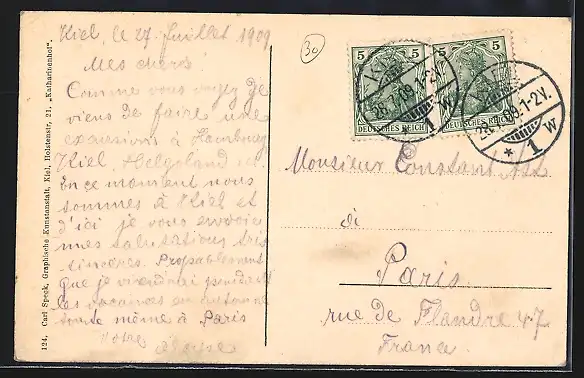 Kiel, le 27 Juillet 1909
Mes chers
Comme vous voyez je
viens de faire une
excursion à Hambourg
Kiel, Helgoland etc.
En ce moment nous
sommes à Kiel et
d'ici je vous envoie
mes salutations très
sincères. Propablement
que je viendrai pendant
les vacances en
même à Paris
Votre
30
5 5 5 5
DEUTSCHES REICH DEUTSCHES REICH
KIEL
28.7.09.1-2V.
* 1 w
28.7.09.1-2V.
* 1 w
Monsieur Constant
à
Paris
rue de Flandre 47
France.
124. Carl Speck, Graphische Kunstanstalt, Kiel, Holstenstr. 21. „Katharinenhof".